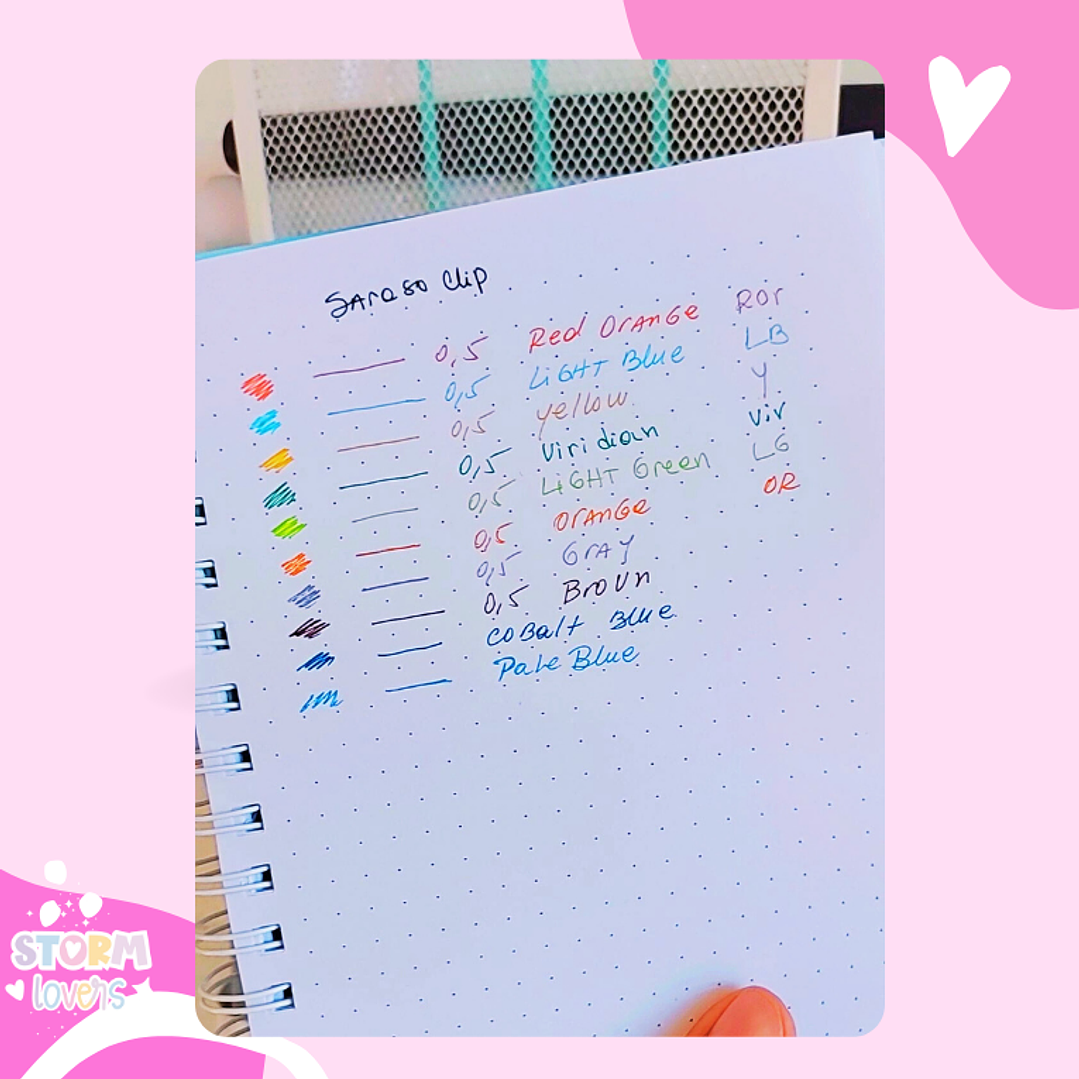 SAraso Clip
0,5 Red OrANGe ROr
0,5 LiGHT Blue LB
0,5 yellow Y
0,5 Viridian Vir
0,5 LiGHT Green LG
0,5 OrANGe OR
0,5 GrAY
0,5 BroUn
coBalt Blue
Pale Blue
STORM
lovers